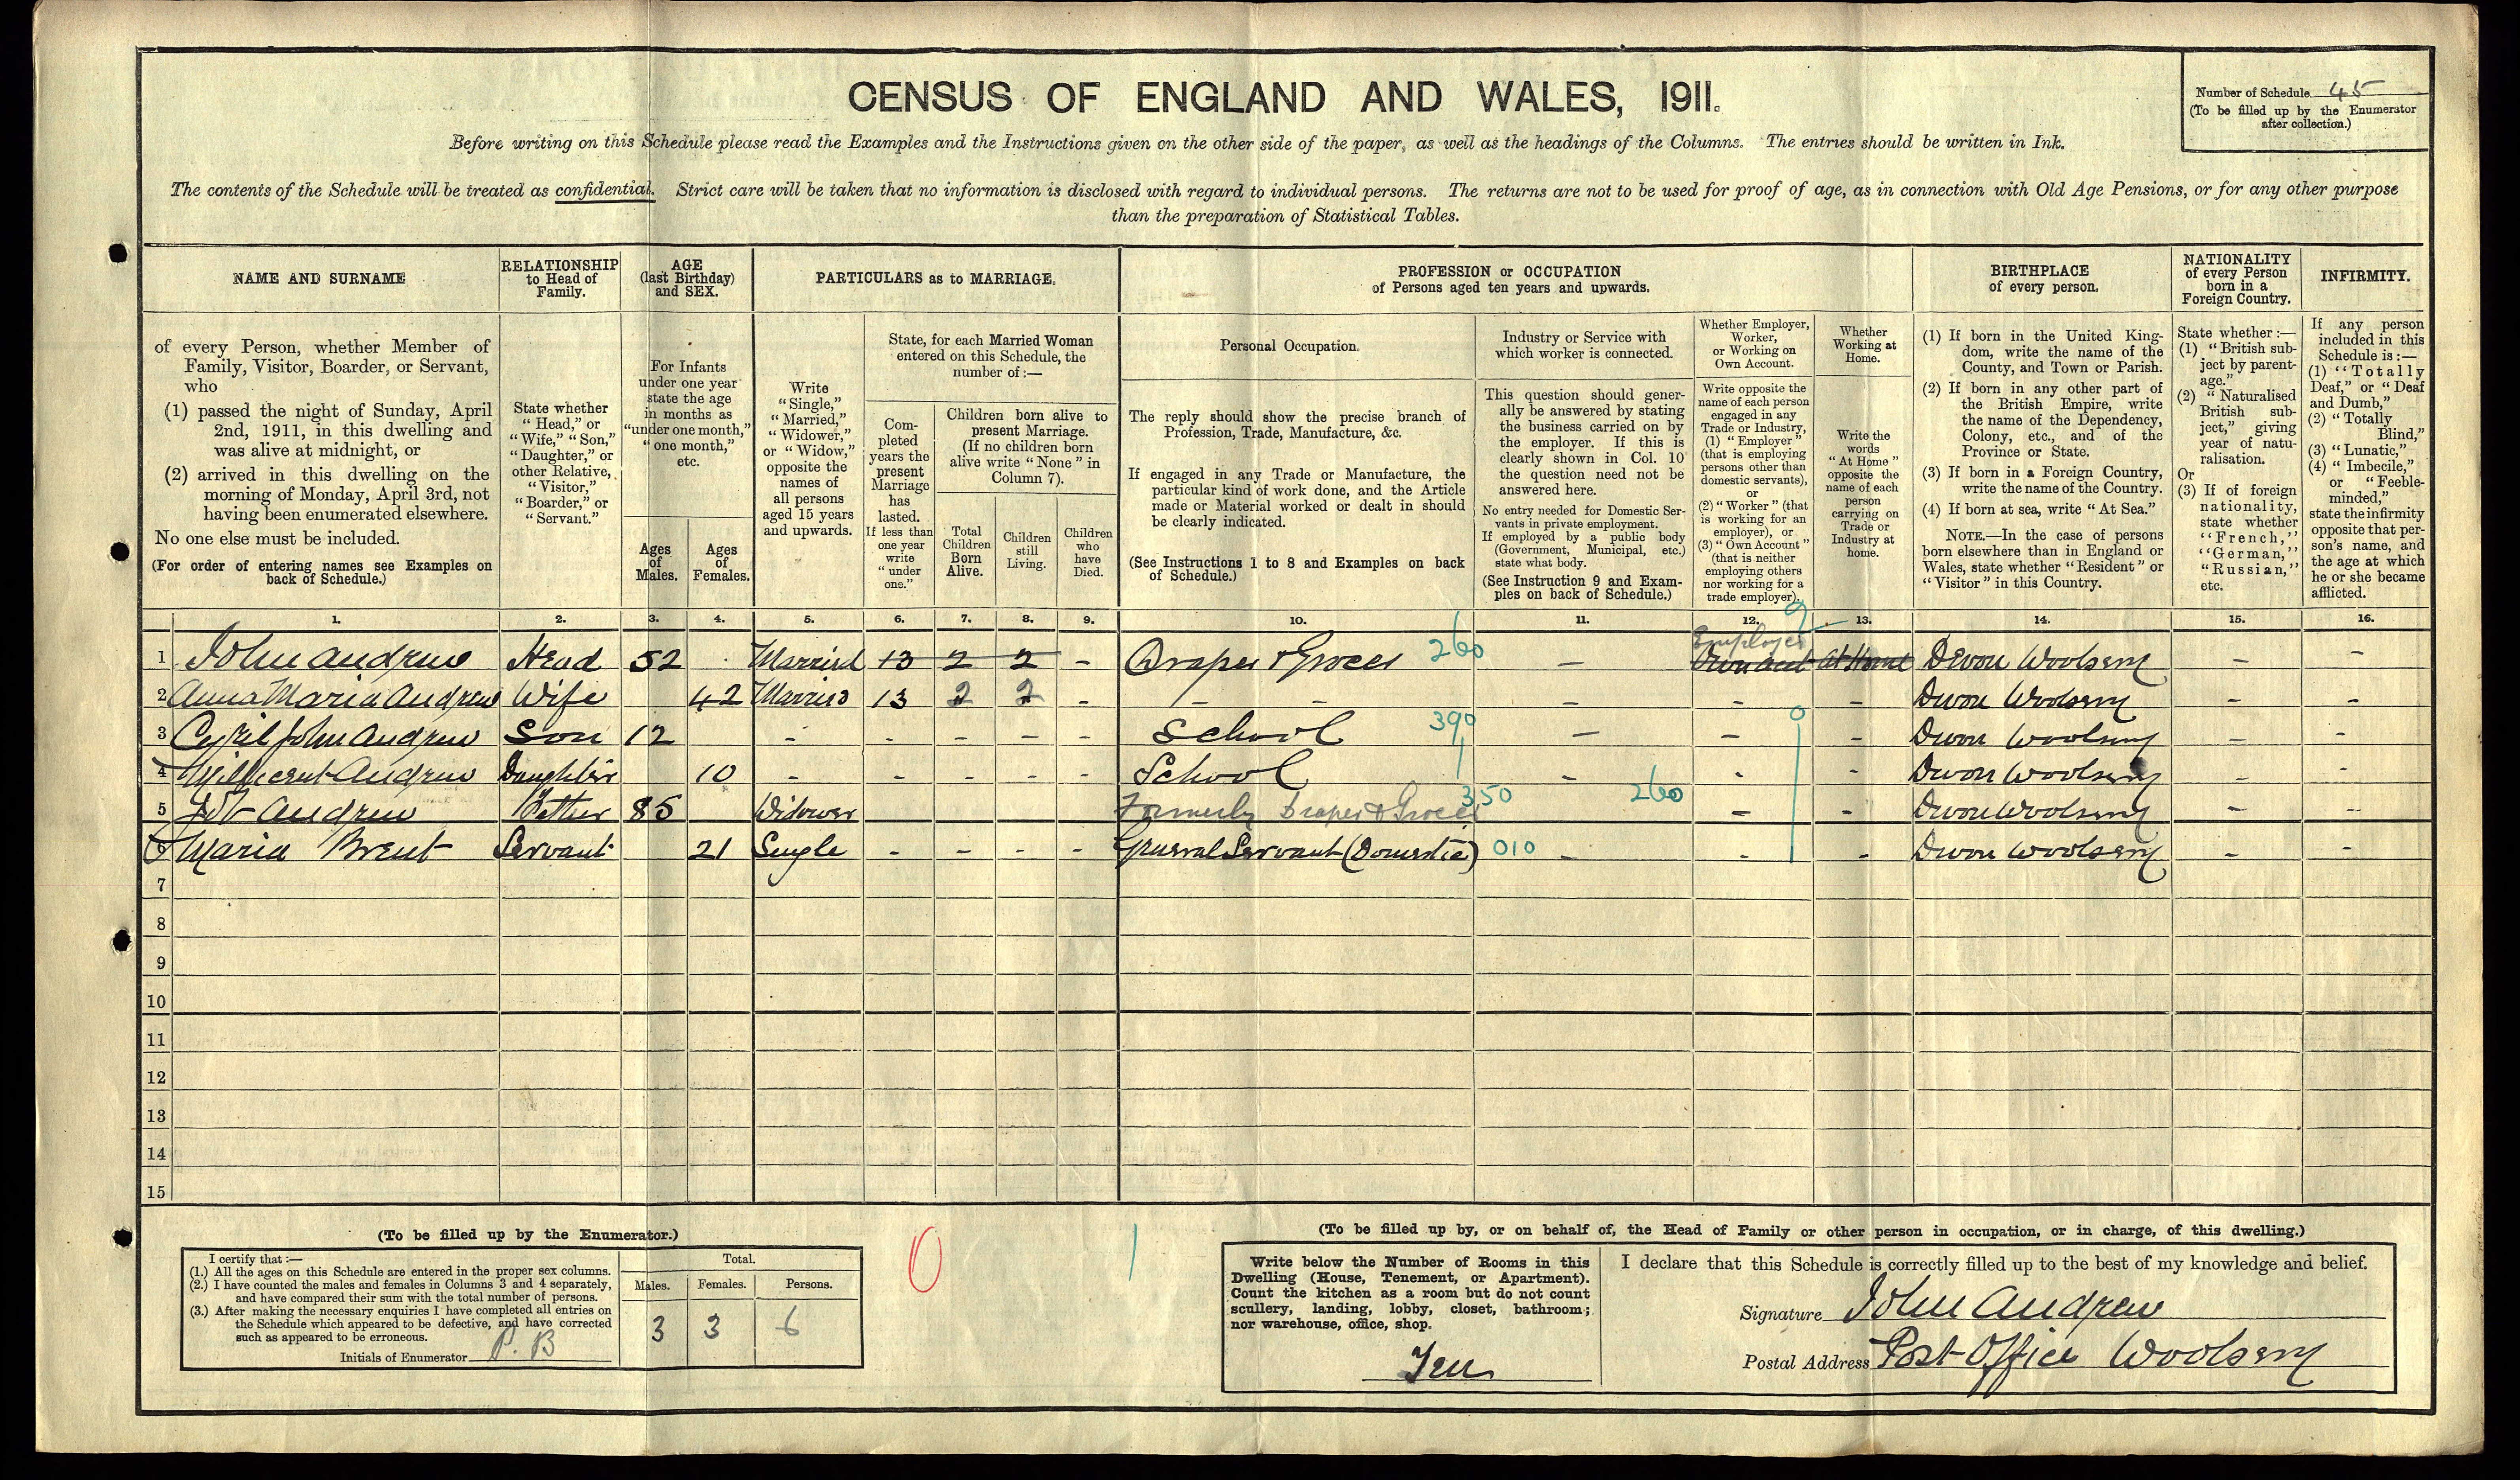 CENSUS OF ENGLAND AND WALES, 1911.
Number of Schedule 45
(To be filled up by the Enumerator
after collection.)
Before writing on this Schedule please read the Examples and the Instructions given on the other side of the paper, as well as the headings of the Columns. The entries should be written in Ink.
The contents of the Schedule will be treated as confidential. Strict care will be taken that no information is disclosed with regard to individual persons. The returns are not to be used for proof of age, as in connection with Old Age Pensions, or for any other purpose
than the preparation of Statistical Tables.
NAME AND SURNAME
of every Person, whether Member of
Family, Visitor, Boarder, or Servant,
who
(1) passed the night of Sunday, April
2nd, 1911, in this dwelling and
was alive at midnight, or
(2) arrived in this dwelling on the
morning of Monday, April 3rd, not
having been enumerated elsewhere.
No one else must be included.
(For order of entering names see Examples on
back of Schedule.)
RELATIONSHIP
to Head of
Family.
State whether
"Head," or
"Wife," "Son,"
"Daughter," or
other Relative,
"Visitor,"
"Boarder," or
"Servant."
AGE
(last Birthday)
and SEX.
For Infants
under one year
state the age
in months as
"under one month,"
"one month,"
etc.
Ages
of
Males.
Ages
of
Females.
PARTICULARS as to MARRIAGE.
Write
"Single,"
"Married,"
"Widower,"
or "Widow,"
opposite the
names of
all persons
aged 15 years
and upwards.
State, for each Married Woman
entered on this Schedule, the
number of :—
Com-
pleted
years the
present
Marriage
has
lasted.
If less than
one year
write
"under
one."
Children born alive to
present Marriage.
(If no children born
alive write "None" in
Column 7).
Total
Children
Born
Alive.
Children
still
Living.
Children
who
have
Died.
PROFESSION or OCCUPATION
of Persons aged ten years and upwards.
Personal Occupation.
The reply should show the precise branch of
Profession, Trade, Manufacture, &c.
If engaged in any Trade or Manufacture, the
particular kind of work done, and the Article
made or Material worked or dealt in should
be clearly indicated.
(See Instructions 1 to 8 and Examples on back
of Schedule.)
Industry or Service with
which worker is connected.
This question should gener-
ally be answered by stating
the business carried on by
the employer. If this is
clearly shown in Col. 10
the question need not be
answered here.
No entry needed for Domestic Ser-
vants in private employment.
If employed by a public body
(Government, Municipal, etc.)
state what body.
(See Instruction 9 and Exam-
ples on back of Schedule.)
Whether Employer,
Worker,
or Working on
Own Account.
Write opposite the
name of each person
engaged in any
Trade or Industry,
(1) "Employer"
(that is employing
persons other than
domestic servants),
or
(2) "Worker" (that
is working for an
employer), or
(3) "Own Account"
(that is neither
employing others
nor working for a
trade employer).
Whether
Working at
Home.
Write the
words
"At Home"
opposite the
name of each
person
carrying on
Trade or
Industry at
home.
BIRTHPLACE
of every person.
(1) If born in the United King-
dom, write the name of the
County, and Town or Parish.
(2) If born in any other part of
the British Empire, write
the name of the Dependency,
Colony, etc., and of the
Province or State.
(3) If born in a Foreign Country,
write the name of the Country.
(4) If born at sea, write "At Sea."
NOTE.—In the case of persons
born elsewhere than in England or
Wales, state whether "Resident" or
"Visitor" in this Country.
NATIONALITY
of every Person
born in a
Foreign Country.
State whether :—
(1) "British sub-
ject by parent-
age."
(2) "Naturalised
British sub-
ject," giving
year of natu-
ralisation.
Or
(3) If of foreign
nationality,
state whether
"French,"
"German,"
"Russian,"
etc.
INFIRMITY.
If any person
included in this
Schedule is :—
(1) "Totally
Deaf," or "Deaf
and Dumb,"
(2) "Totally
Blind,"
(3) "Lunatic,"
(4) "Imbecile,"
or "Feeble-
minded,"
state the infirmity
opposite that per-
son's name, and
the age at which
he or she became
afflicted.
1. 2. 3. 4. 5. 6. 7. 8. 9. 10. 11. 12. 13. 14. 15. 16.
9
Employer
1 John Andrew Head 52 Married 13 2 2 - Draper & Grocer 260 - Own acct At Home Devon Woolsery - -
2 Anna Maria Andrew Wife 42 Married 13 2 2 - - - - - - Devon Woolsery - -
3 Cyril John Andrew Son 12 - - - - - School 390 - - 0 - Devon Woolsery - -
4 Millicent Andrew Daughter 10 - - - - - School - - - Devon Woolsery - -
5 Job Andrew Father 85 Widower Formerly Draper & Grocer 350 260 - - Devon Woolsery - -
6 Maria Brent Servant 21 Single - - - - General Servant (Domestic) 010 - - - Devon Woolsery - -
7
8
9
10
11
12
13
14
15
(To be filled up by the Enumerator.)
I certify that :—
(1.) All the ages on this Schedule are entered in the proper sex columns.
(2.) I have counted the males and females in Columns 3 and 4 separately,
and have compared their sum with the total number of persons.
(3.) After making the necessary enquiries I have completed all entries on
the Schedule which appeared to be defective, and have corrected
such as appeared to be erroneous.
Initials of Enumerator P. B
Total.
Males. Females. Persons.
3 3 6
0
1
(To be filled up by, or on behalf of, the Head of Family or other person in occupation, or in charge, of this dwelling.)
Write below the Number of Rooms in this
Dwelling (House, Tenement, or Apartment).
Count the kitchen as a room but do not count
scullery, landing, lobby, closet, bathroom;
nor warehouse, office, shop.
Ten
I declare that this Schedule is correctly filled up to the best of my knowledge and belief.
Signature John Andrew
Postal Address Post Office Woolsery